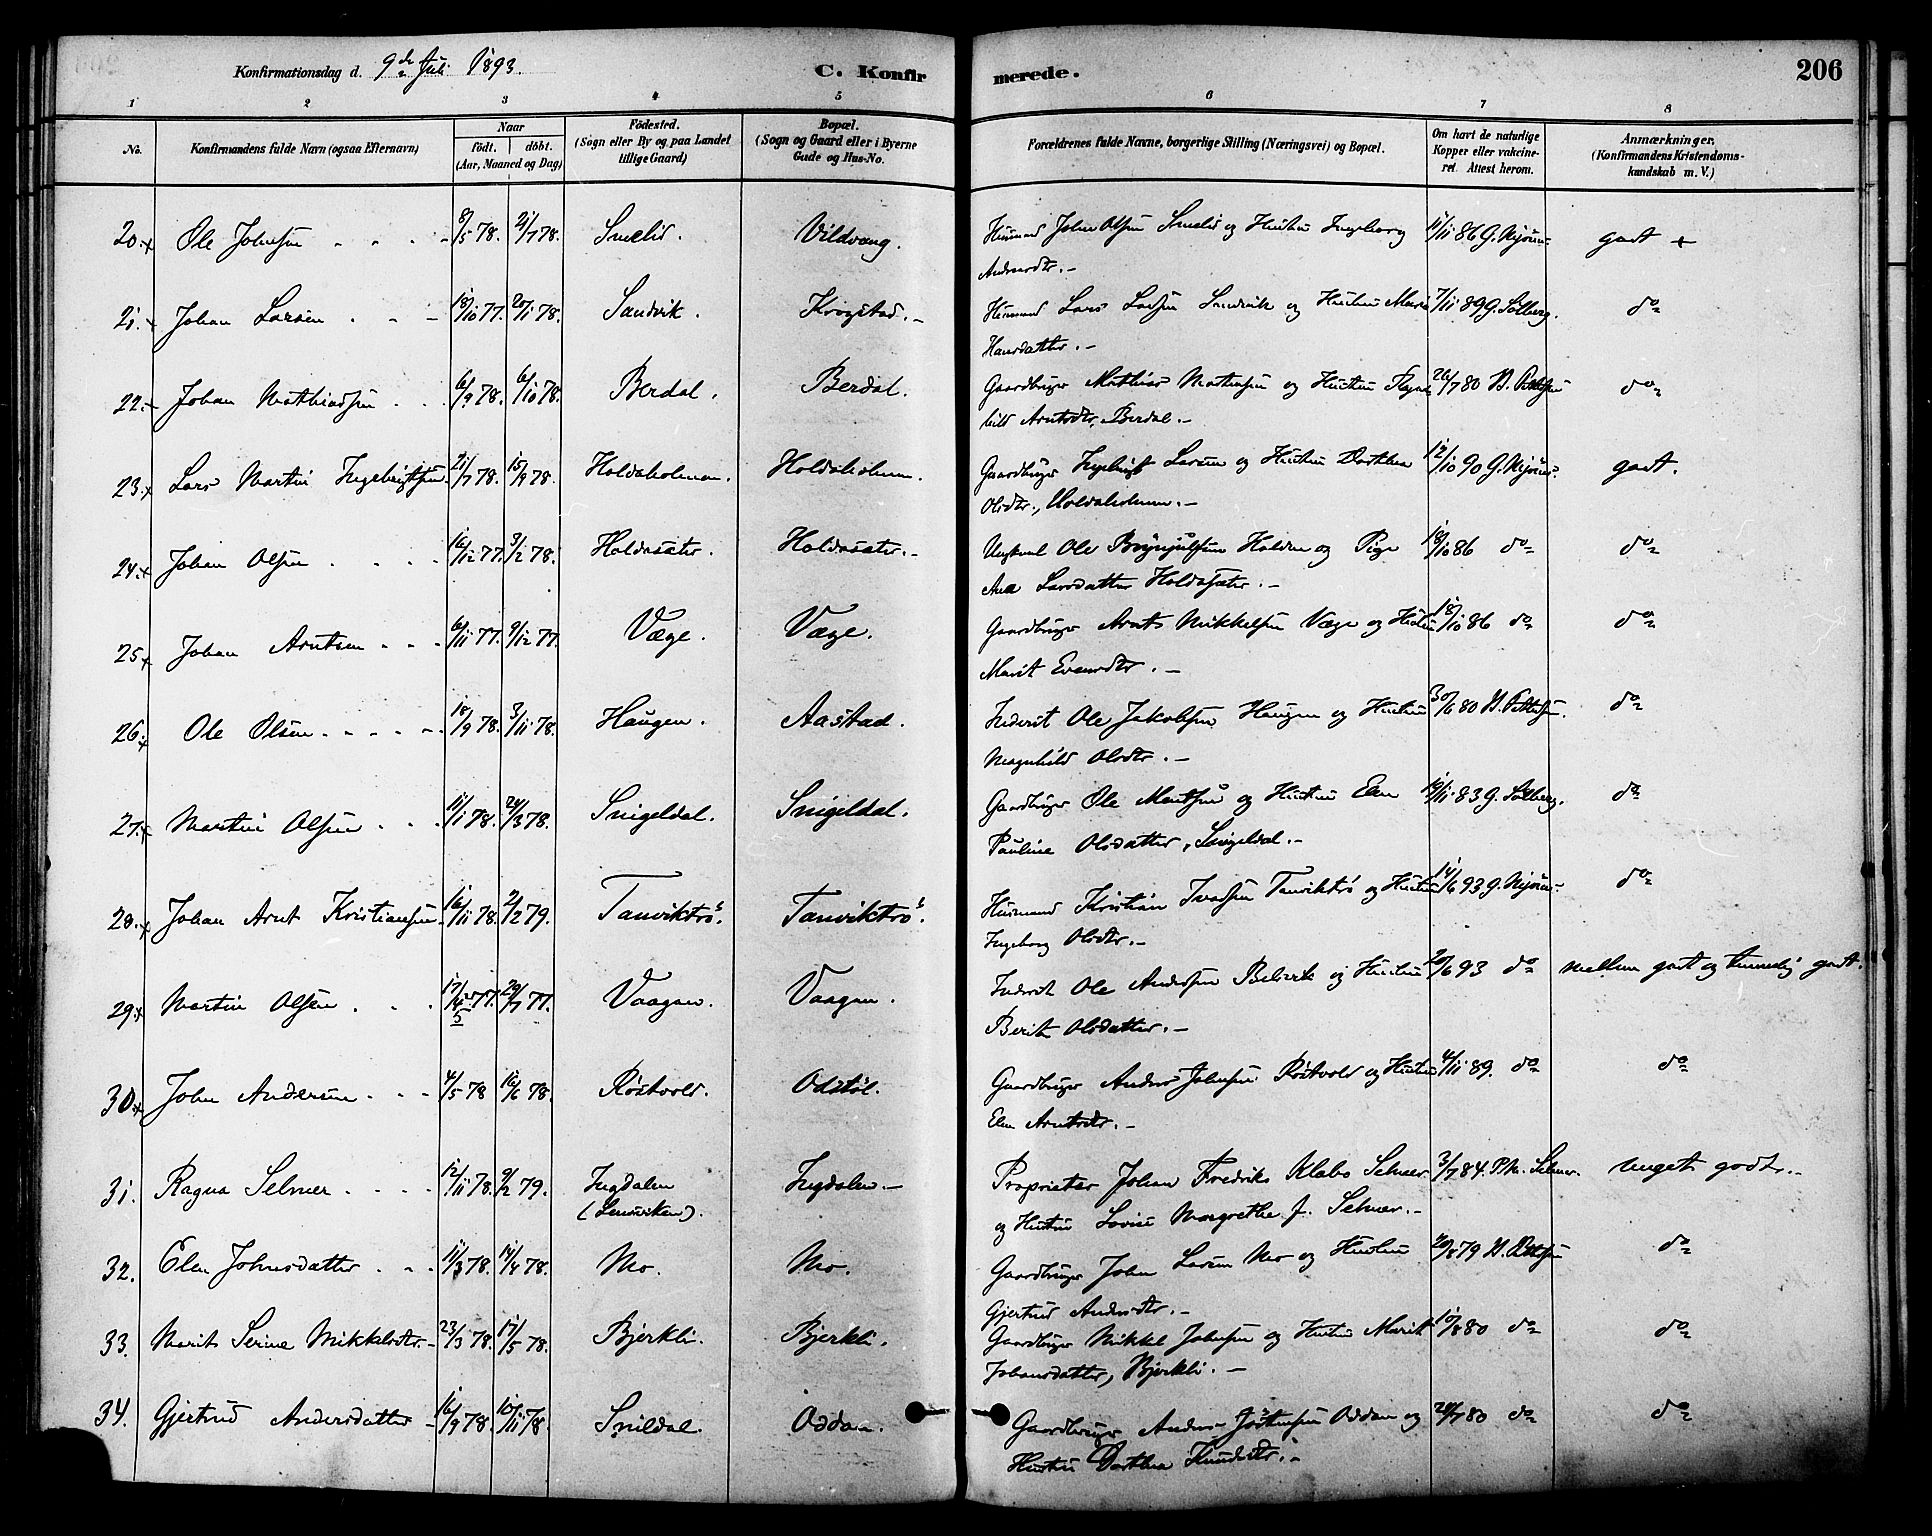 Konfirmationsdag d. 9de Juli 1893.
C. Konfirmerede.
206
1 2 3 4 5 6 7 8
No.
Konfirmandens fulde Navn (ogsaa Efternavn)
Naar
födt. döbt.
(Aar, Maaned og Dag)
Födested.
(Sogn eller By og paa Landet
tillige Gaard)
Bopæl.
(Sogn og Gaard eller i Byerne
Gade og Hus-No.
Forældrenes fulde Navne, borgerlige Stilling (Næringsvei) og Bopæl.
Om havt de naturlige
Kopper eller vakcine-
ret. Attest herom.
Anmærkninger.
(Konfirmandens Kristendoms-
kundskab m. V.)
20. Ole Johnsen 8/5 78. 21/7 78. Smelid. Vildvang. Husmand John Olsen Smelid og Hustru Ingeborg 11/11 86 G. godt +
Andersdtr. -
21. Johan Larsen 18/10 77. 20/1 78. Sandvik. Krogstad. - Husmand Lars Larsen Sandvik og Hustru Marit 7/11 89 G. Solberg. do
Hansdatter. -
22. Johan Mathiassen 6/9 78. 6/10 78. Berdal. Berdal. Gaardbruger Mathias og Hustru 26/7 80 do
Arntsdtr., Berdal. -
23. Lars Martin Ingebrigtsen 21/7 78. 15/9 78. Holdaholman. Holdaholmen. Gaardbruger Ingebrigt Larsen og Hustru Dorthea 12/10 90 G. godt.
Olsdtr., Holdaholmen. -
24. Johan Olsen 16/12 77. 3/2 78. Holdasæter. Holdasæter. - Ungkarl Ole Brynjulfsen Holden og Pige 18/10 86 do do
Ana Larsdatter Holdasæter. -
25. Johan Arntsen 6/11 77. 9/12 77. Væge. Væge. Gaardbruger Arnt Mikkelsen Væge og Hustru 18/10 86 do do
Marit Evensdtr. -
26. Ole Olsen 18/9 78. 3/11 78. Haugen. Aastad. Inderst Ole Jakobsen Haugen og Hustru 30/6 80 do
Magnhild Olsdtr. -
27. Martin Olsen 11/1 78. 24/3 78. Snigeldal. Snigeldal. Gaardbruger Ole Mentsen og Hustru Elen 19/11 83 G. Solberg. do
Pauline Olsdatter, Snigeldal. -
28. Johan Arnt Kristiansen 16/11 78. 2/2 79. Tanviktrø. Tanviktrø. Husmand Kristian Ivarsen Tanviktrø og Hustru 14/6 93 G. do
Ingeborg Olsdtr. -
29. Martin Olsen 17/5 77. 29/7 77. Vaagan. Vaagan. Inderst Ole Andersen Belsvik og Hustru 20/6 93 do mellem godt og temmelig godt.
Berit Olsdatter. -
30. John Andersen 4/5 78 16/6 78. Røstvold. Odstøl. Gaardbruger Anders Johnsen Røstvold og Hustru 4/11 89. do do
Elen Arntsdtr. -
31. Ragna Selmer 12/11 78. 9/2 79. Ingdalen Ingdalen - Proprietær Johan Fredrik Klabo Selmer 3/7 84. P. M. Selmer. meget godt. -
(Lensviken). og Hustru Lovise Margrethe f. Selmer. -
32. Elen Johnsdatter 11/3 78. 14/4 78. Mo. Mo. Gaardbruger John Larsen Mo og Hustru 20/8 79 do
Gjertrud Andersdtr. -
33. Marit Serine Mikkelsdtr. - 23/3 78. 17/5 78. Bjerkli. Bjerkli. Gaardbruger Mikkel Johnsen og Hustru Marit 10/8 80 do do
Johansdatter, Bjerkli. -
34. Gjertrud Andersdatter - 16/9 78. 10/11 78. Snildal. Oddan. Gaardbruger Anders Jostensen Oddan og 24/7 80 do do
Hustru Dorthea Knudsdtr. -